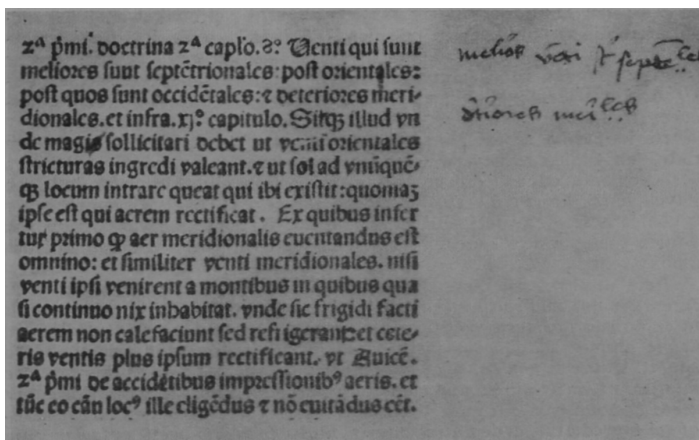 zª p̄mi. doctrina zª capl'o. 8º. Venti qui sunt
meliores sunt septētrionales: post orientales:
post quos sunt occidētales: ⁊ deteriores meri-
dionales. et infra. xjº. capitulo. Sitqꝫ illud vn
de magis sollicitari debet ut venti orientales
stricturas ingredi valeant. ⁊ ut sol ad vnūquē-
qꝫ locum intrare queat qui ibi existit: quoniaꝫ
ipse est qui aerem rectificat. Ex quibus infer
tur primo ꝙ aer meridionalis euentandus est
omnino: et similiter venti meridionales. nisi
venti ipsi venirent a montibus in quibus qua
si continuo nix inhabitat. vnde sic frigidi facti
aerem non calefaciunt sed refrigerant: et cete-
ris ventis plus ipsum rectificant. vt Auicē.
zª p̄mi de accidētibus impressionibꝰ aeris. et
tūc eo cān locꝰ ille eligēdus ⁊ nō euitādus eēt.
meliōs vēti sūt septē.les
dt̄iores meri.les